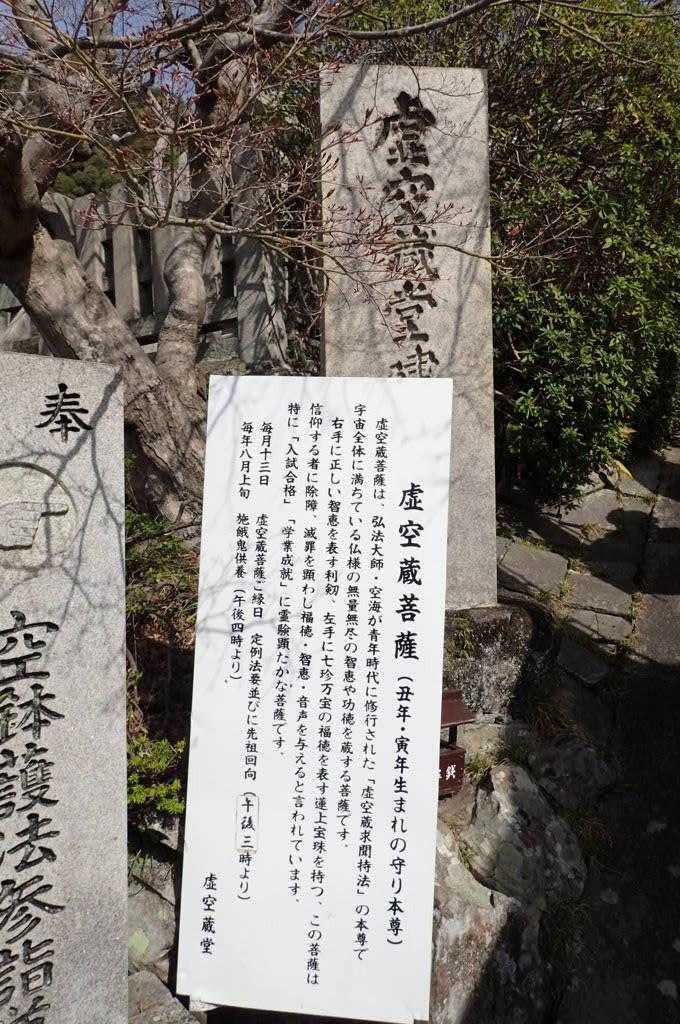 虚空蔵堂建
虚空蔵菩薩（丑年・寅年生まれの守り本尊）
虚空蔵菩薩は、弘法大師・空海が青年時代に修行された「虚空蔵求聞持法」の本尊で
宇宙全体に満ちている仏様の無量無尽の智恵や功徳を蔵する菩薩です。
右手に正しい智恵を表す利剱、左手に七珍万宝の福徳を表す蓮上宝珠を持つ、この菩薩は
信仰する者に除障、滅罪を顕わし福徳・智恵・音声を与えると言われています。
特に「入試合格」「学業成就」に霊験顕たかな菩薩です。
毎月十三日　虚空蔵菩薩ご縁日　定例法要並びに先祖回向（午後三時より）
毎年八月上旬　施餓鬼供養（午後四時より）
虚空蔵堂
奉
空鉢護法参詣
銭